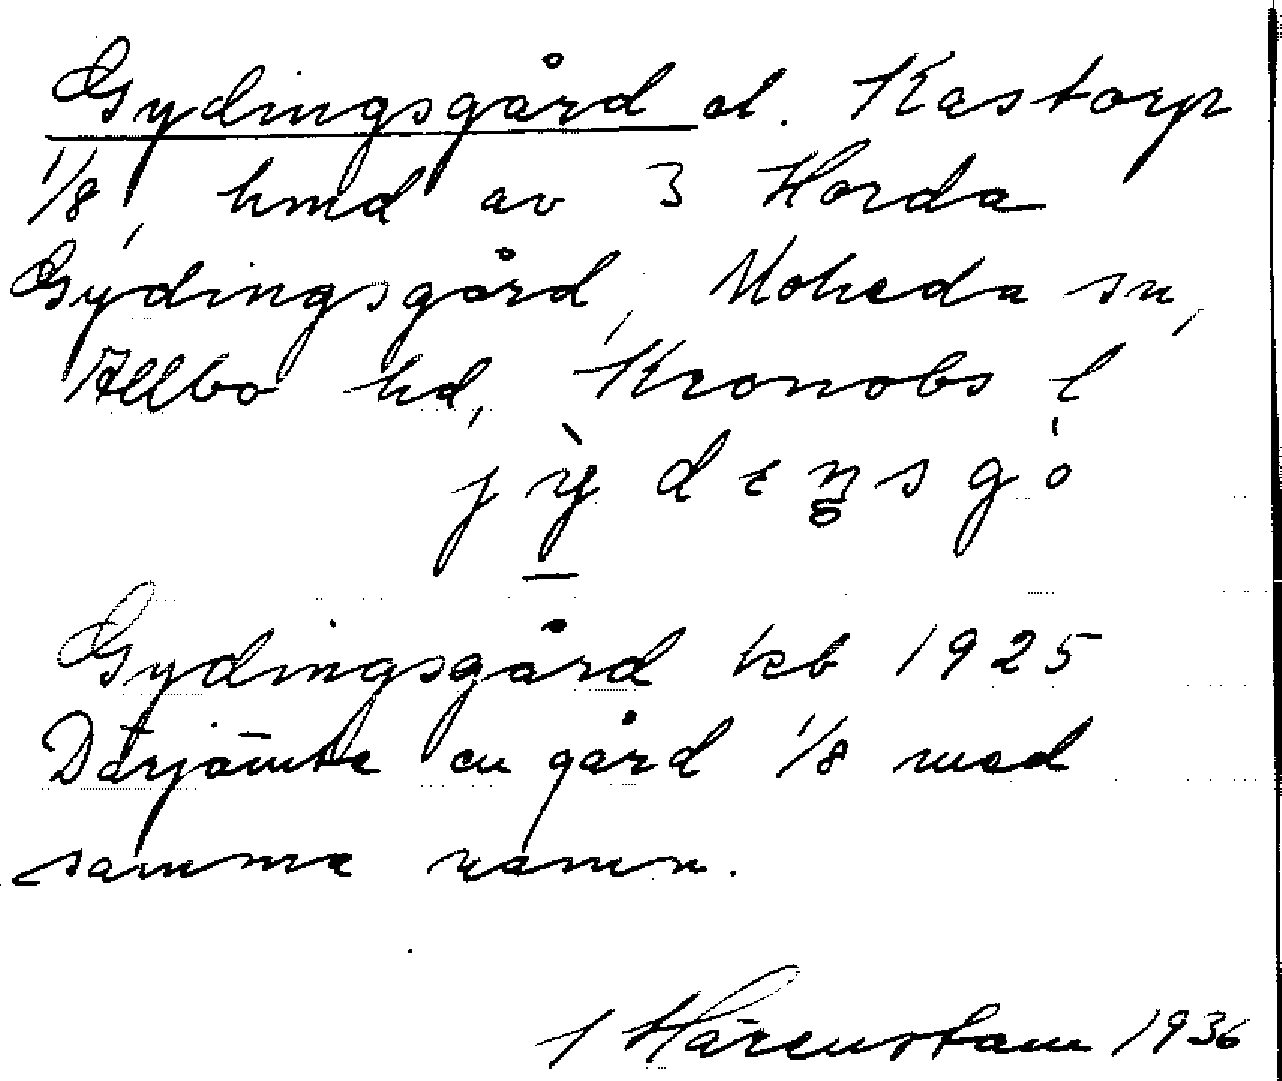 Gydingsgård el. Kastorp
1/8, hmd av 3 Horda
Gydingsgård, Moheda sn,
Allbo hd, Kronobs l
Gydingsgård kb 1925
Därjämte en gård 1/8 med
samma namn.
J Härenstam 1936